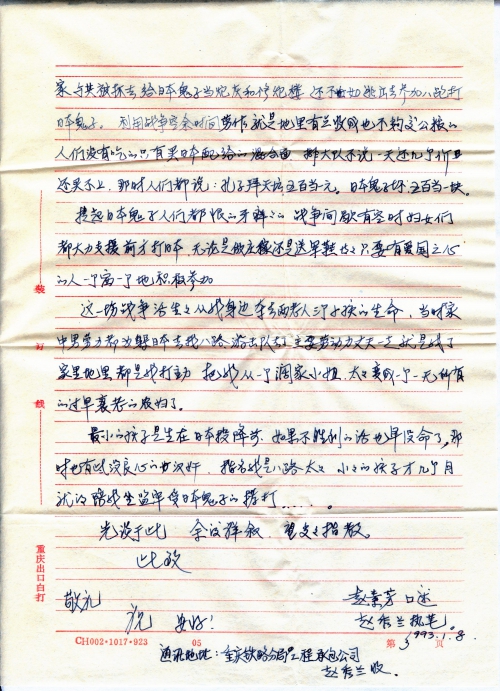 家与其被抓去给日本鬼子当炮灰和修炮楼 还不如逃出去参加八路打
日本鬼子。利用战争空余时间劳作 就是地里有点收成也不够交公粮的
人们没有吃的只有买日本配给的混合面 排大队不说一天还几个价且
还买不上，那时人们都说：孔子拜天坛五百当一元。日本鬼子坏五百当一块。
提起日本鬼子人们都恨的牙根 战争间歇有空时妇女们
都大力支援前方打日本，无论是做庄稼还是送军鞋 只要有爱国之心
的人一个高一个地积极参加
这一场战争活生生从我身边夺去两老人三个小孩的生命，当时家
中男劳力都为躲日本去找八路 游击队去了 主要劳动力 就是我了
家里地里都是我打主动 把我从一个阔家小姐、太太变成一个一无所有
的过早衰老的农妇了。
最小的孩子是生在日本投降前 如果不胜利的话也早没命了，那
时也有些没良心的女汉奸 指名我是八路太太 小小的孩子才几个月
就得陪我坐监牢受日本鬼子的拷打……。
先谈于此 余没详叙，望支支指教。
此致
敬礼
祝 安好！
赵素芳 口述
赵秀兰执笔。
1993.1.8.
CH002·1017·923 05 第 3 页
通讯地址：重庆铁路分局工程承包公司
赵秀兰收。
装
订
线
重庆出口白打